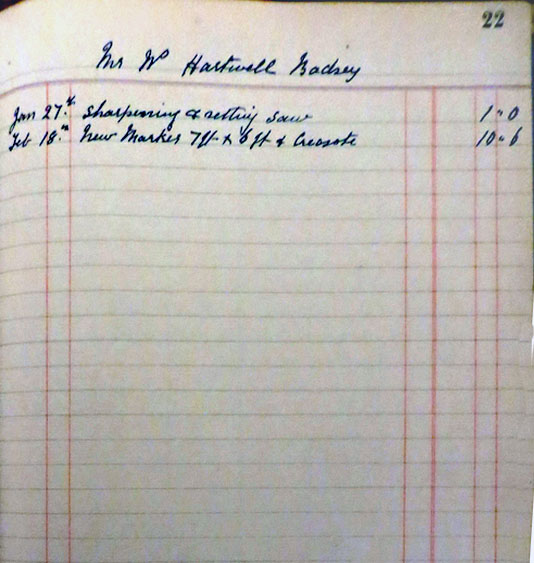 22
Mr Wm Hartwell Badsey
Jan 27th Sharpening & setting Saw 1 " 0
Feb 18th New Marker 7ft x 6ft & Creosote 10 " 6